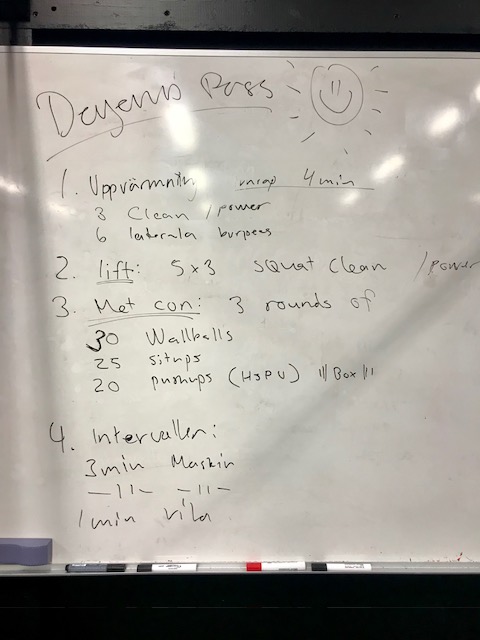 Dagens Pass
1. Uppvärmning amrap 4 min
3 Clean / power
6 laterala burpees
2. lift: 5x3 squat clean / power
3. Met con: 3 rounds of
30 Wallballs
25 situps
20 pushups (HSPU) // Box //
4. Intervaller:
3 min Maskin
—11— —11—
1 min vila